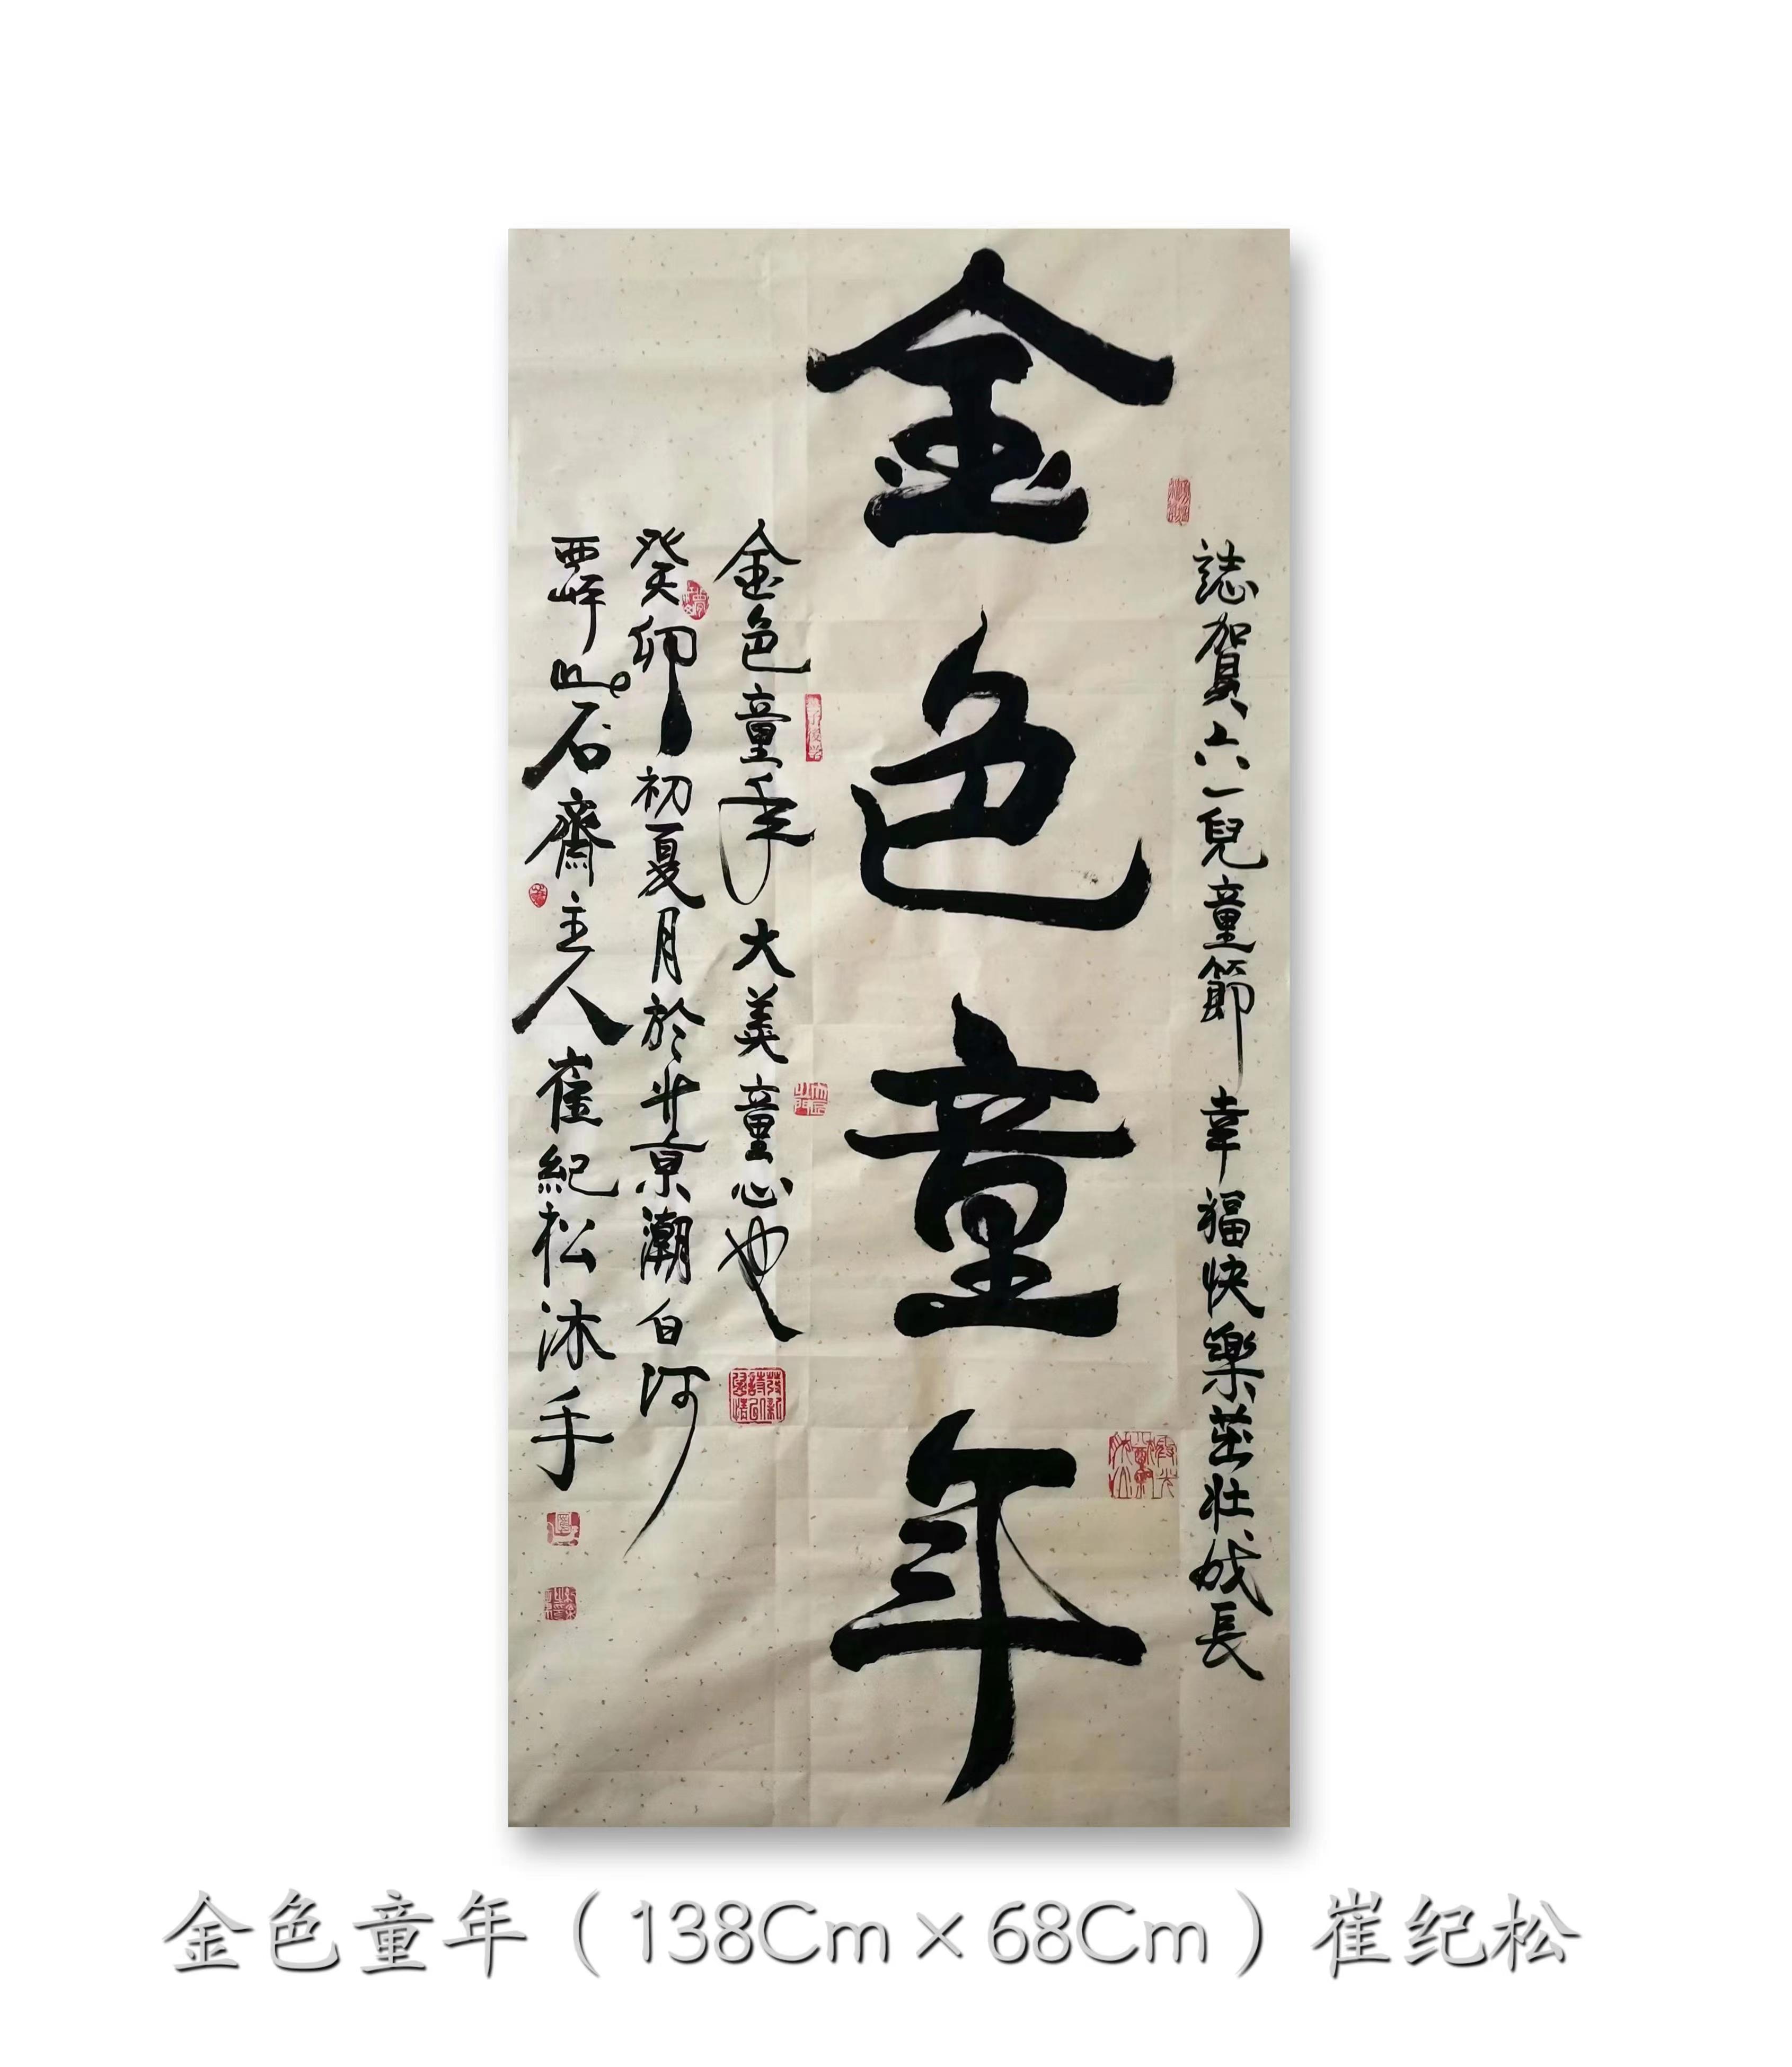 誌賀六一兒童節 幸福快樂茁壯成長
金色童年
金色童年大美童心也
癸卯初夏月於北京潮白河
覃峰山石齋主人崔紀松沐手
金色童年（138Cm×68Cm）崔纪松